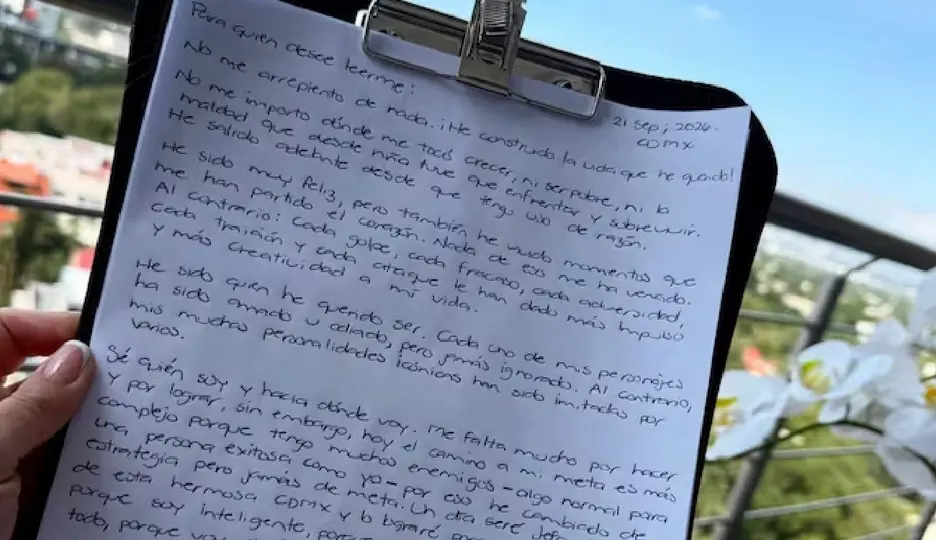 Para quien desee leerme:
21 sep, 2026.
CDMX
No me arrepiento de nada. ¡He construido la vida que he querido!
No me importó dónde me tocó crecer, ni ser pobre, ni la
maldad que desde niña tuve que enfrentar y sobrevivir.
He salido adelante desde que tengo uso de razón.
He sido muy feliz, pero también he vivido momentos que
me han partido el corazón. Nada de eso me ha vencido.
Al contrario: Cada golpe, cada fracaso, cada adversidad,
cada traición y cada ataque le han dado más impulso
y más creatividad a mi vida.
He sido quien he querido ser. Cada uno de mis personajes
ha sido amado u odiado, pero jamás ignorado. Al contrario,
mis muchas personalidades icónicas han sido imitadas por
varios.
Sé quién soy y hacia dónde voy. Me falta mucho por hacer
y por lograr, sin embargo, hoy el camino a mi meta es más
complejo porque tengo muchos enemigos - algo normal para
una persona exitosa como yo - por eso he cambiado de
estrategia pero jamás de meta. Un día seré Jefa
de esta hermosa CDMX y lo lograré
porque soy inteligente,
todo, porque